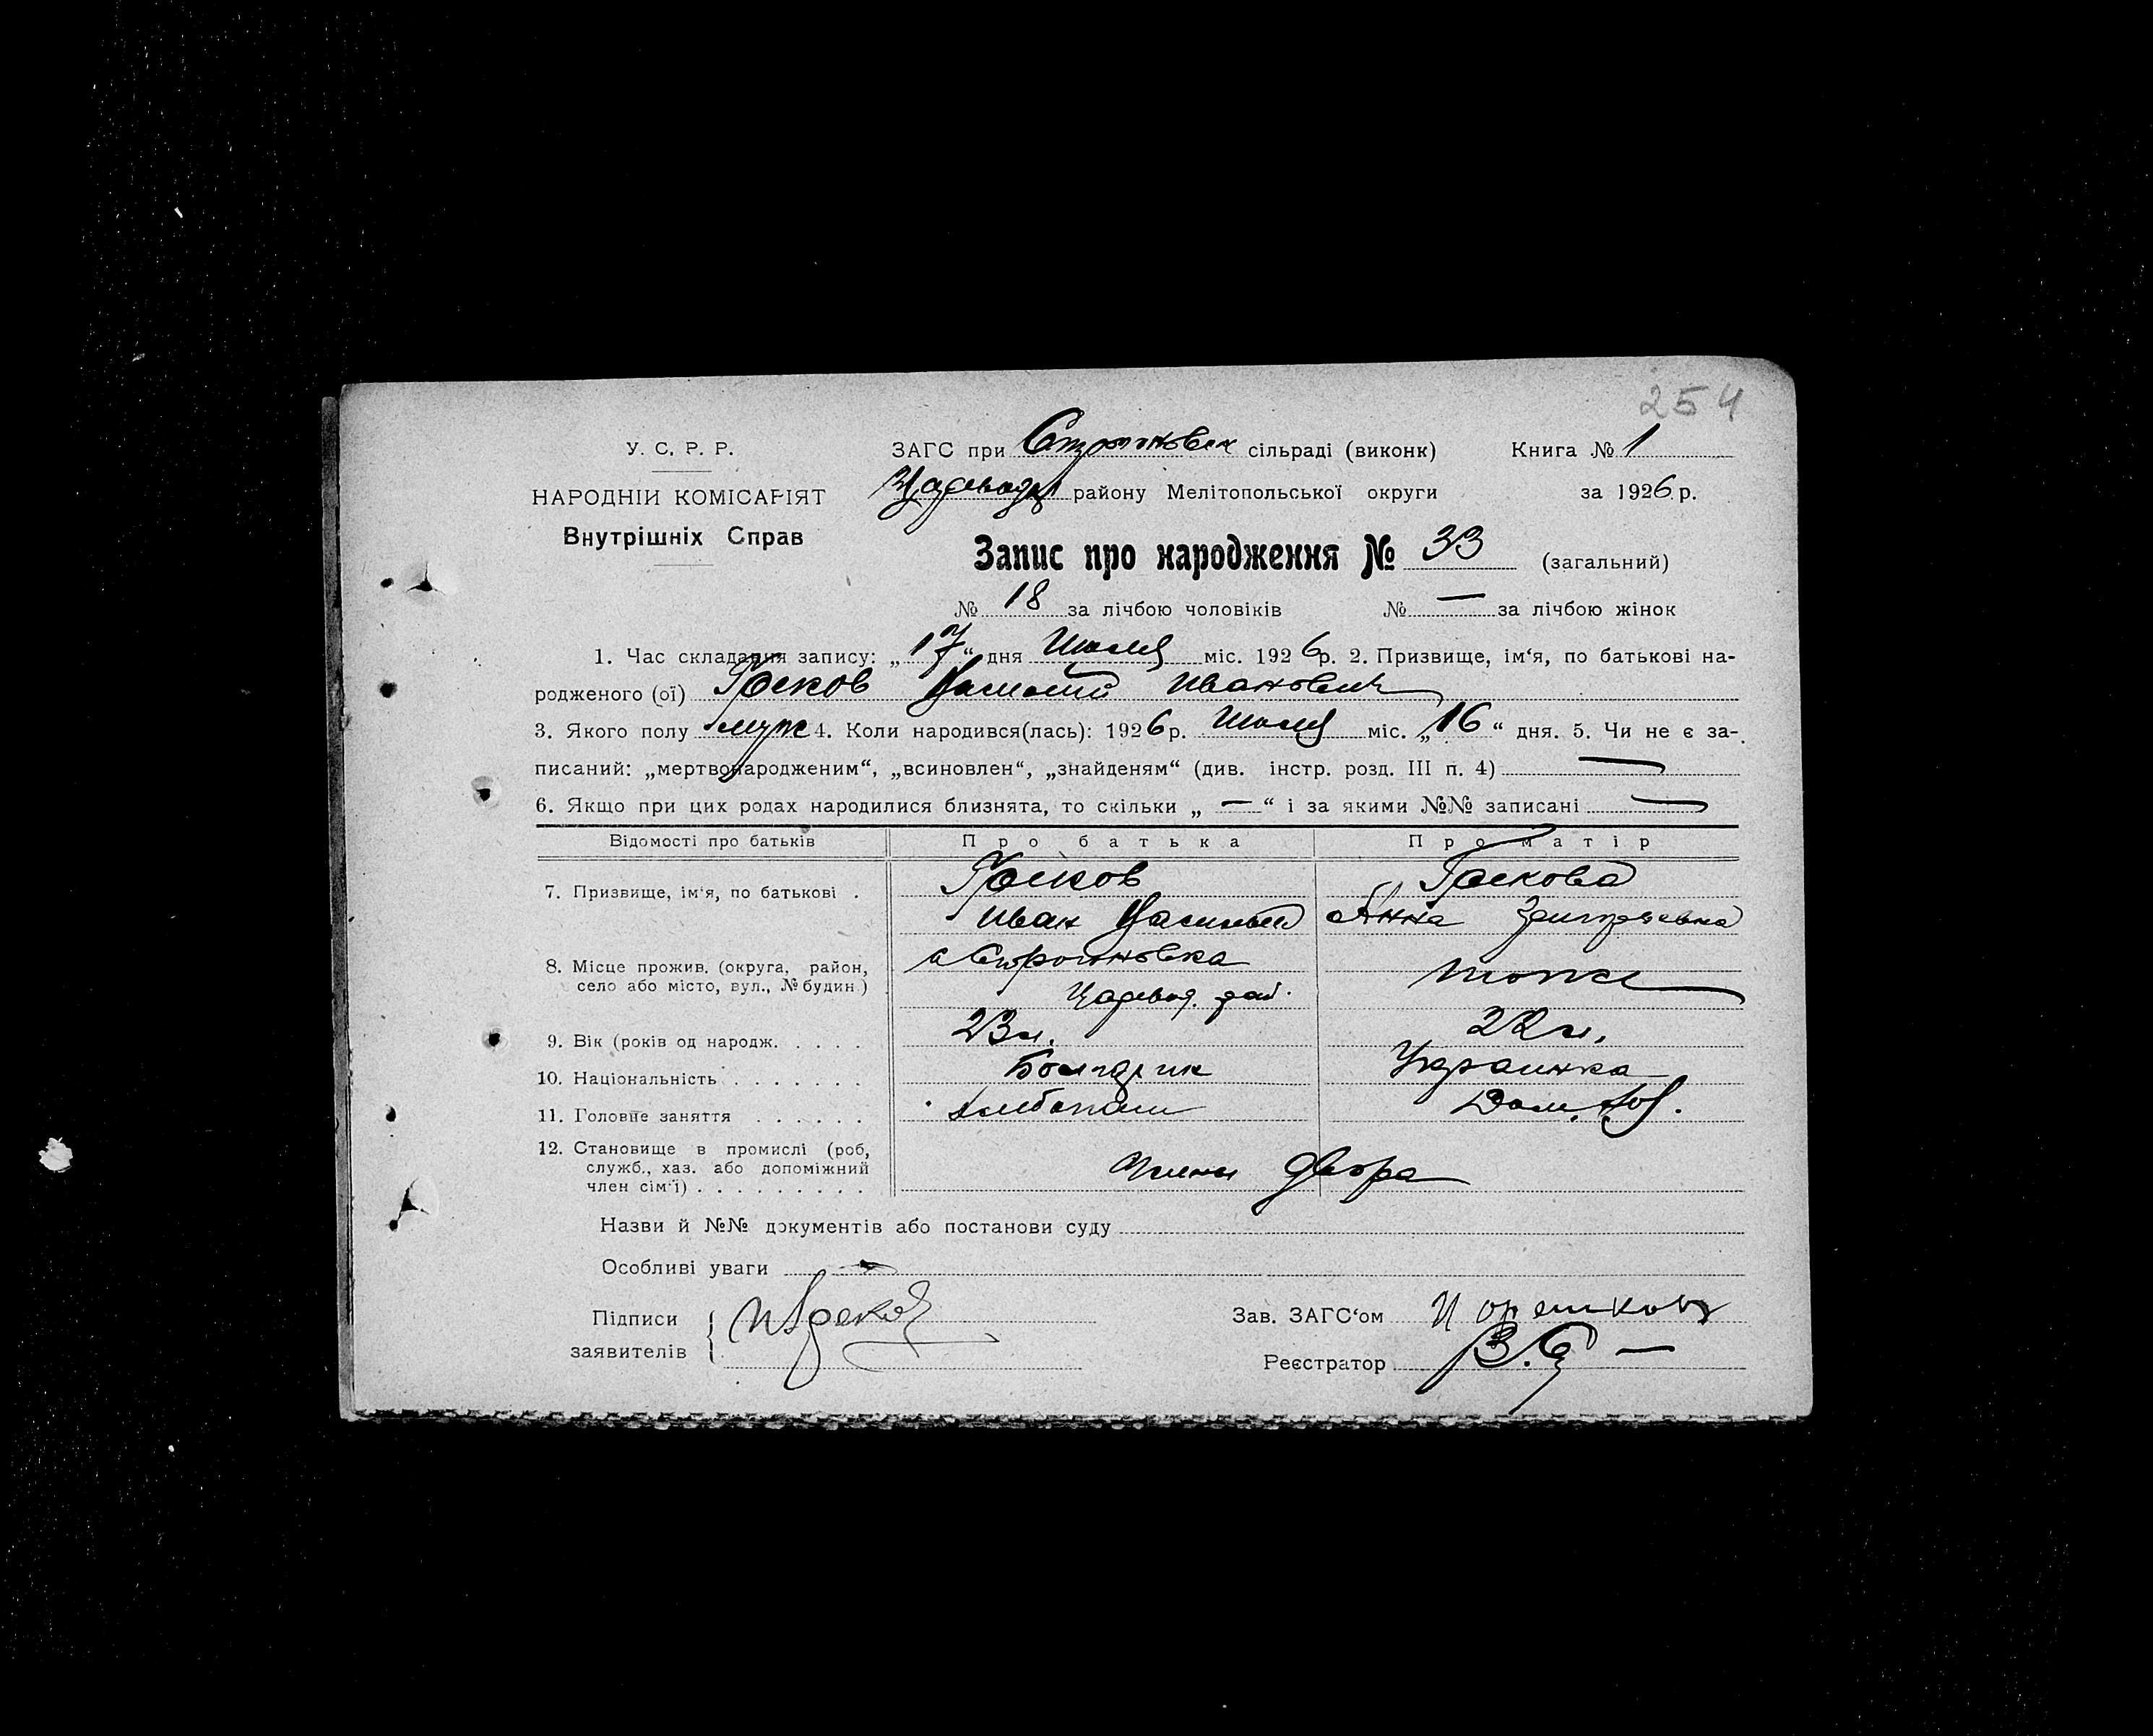 254
У. С. Р. Р.
НАРОДНІЙ КОМІСАРІЯТ
Внутрішніх Справ
ЗАГС при сільраді (виконк) Книга № 1
району Мелітопольської округи за 1926 р.
Запис про народження № 33 (загальний)
№ 18 за лічбою чоловіків № — за лічбою жінок
1. Час складання запису: „17“ дня Июля міс. 1926 р. 2. Призвище, ім‘я, по батькові на-
родженого (ої) Иванович
3. Якого полу муж 4. Коли народився(лась): 1926 р. Июля міс. „16“ дня. 5. Чи не є за-
писаний: „мертвонародженим“, „всиновлен“, „знайденям“ (див. інстр. розд. III п. 4) —
6. Якщо при цих родах народилися близнята, то скільки „ — “ і за якими №№ записані —
Відомості про батьків Про батька Про матір
7. Призвище, ім‘я, по батькові .
Иван Анна
8. Місце прожив. (округа, район,
село або місто, вул., № будин)
тоже
9. Вік (років од народж. . . . . 23 л. 22 л.
10. Національність . . . . . . . Украинка
11. Головне заняття . . . . . . Дом. хоз.
12. Становище в промислі (роб,
служб., хаз. або допоміжний
член сім‘ї) . . . . . . . . . члены двора
Назви й №№ документів або постанови суду
Особливі уваги —
Підписи
заявителів
Зав. ЗАГС‘ом
Реєстратор